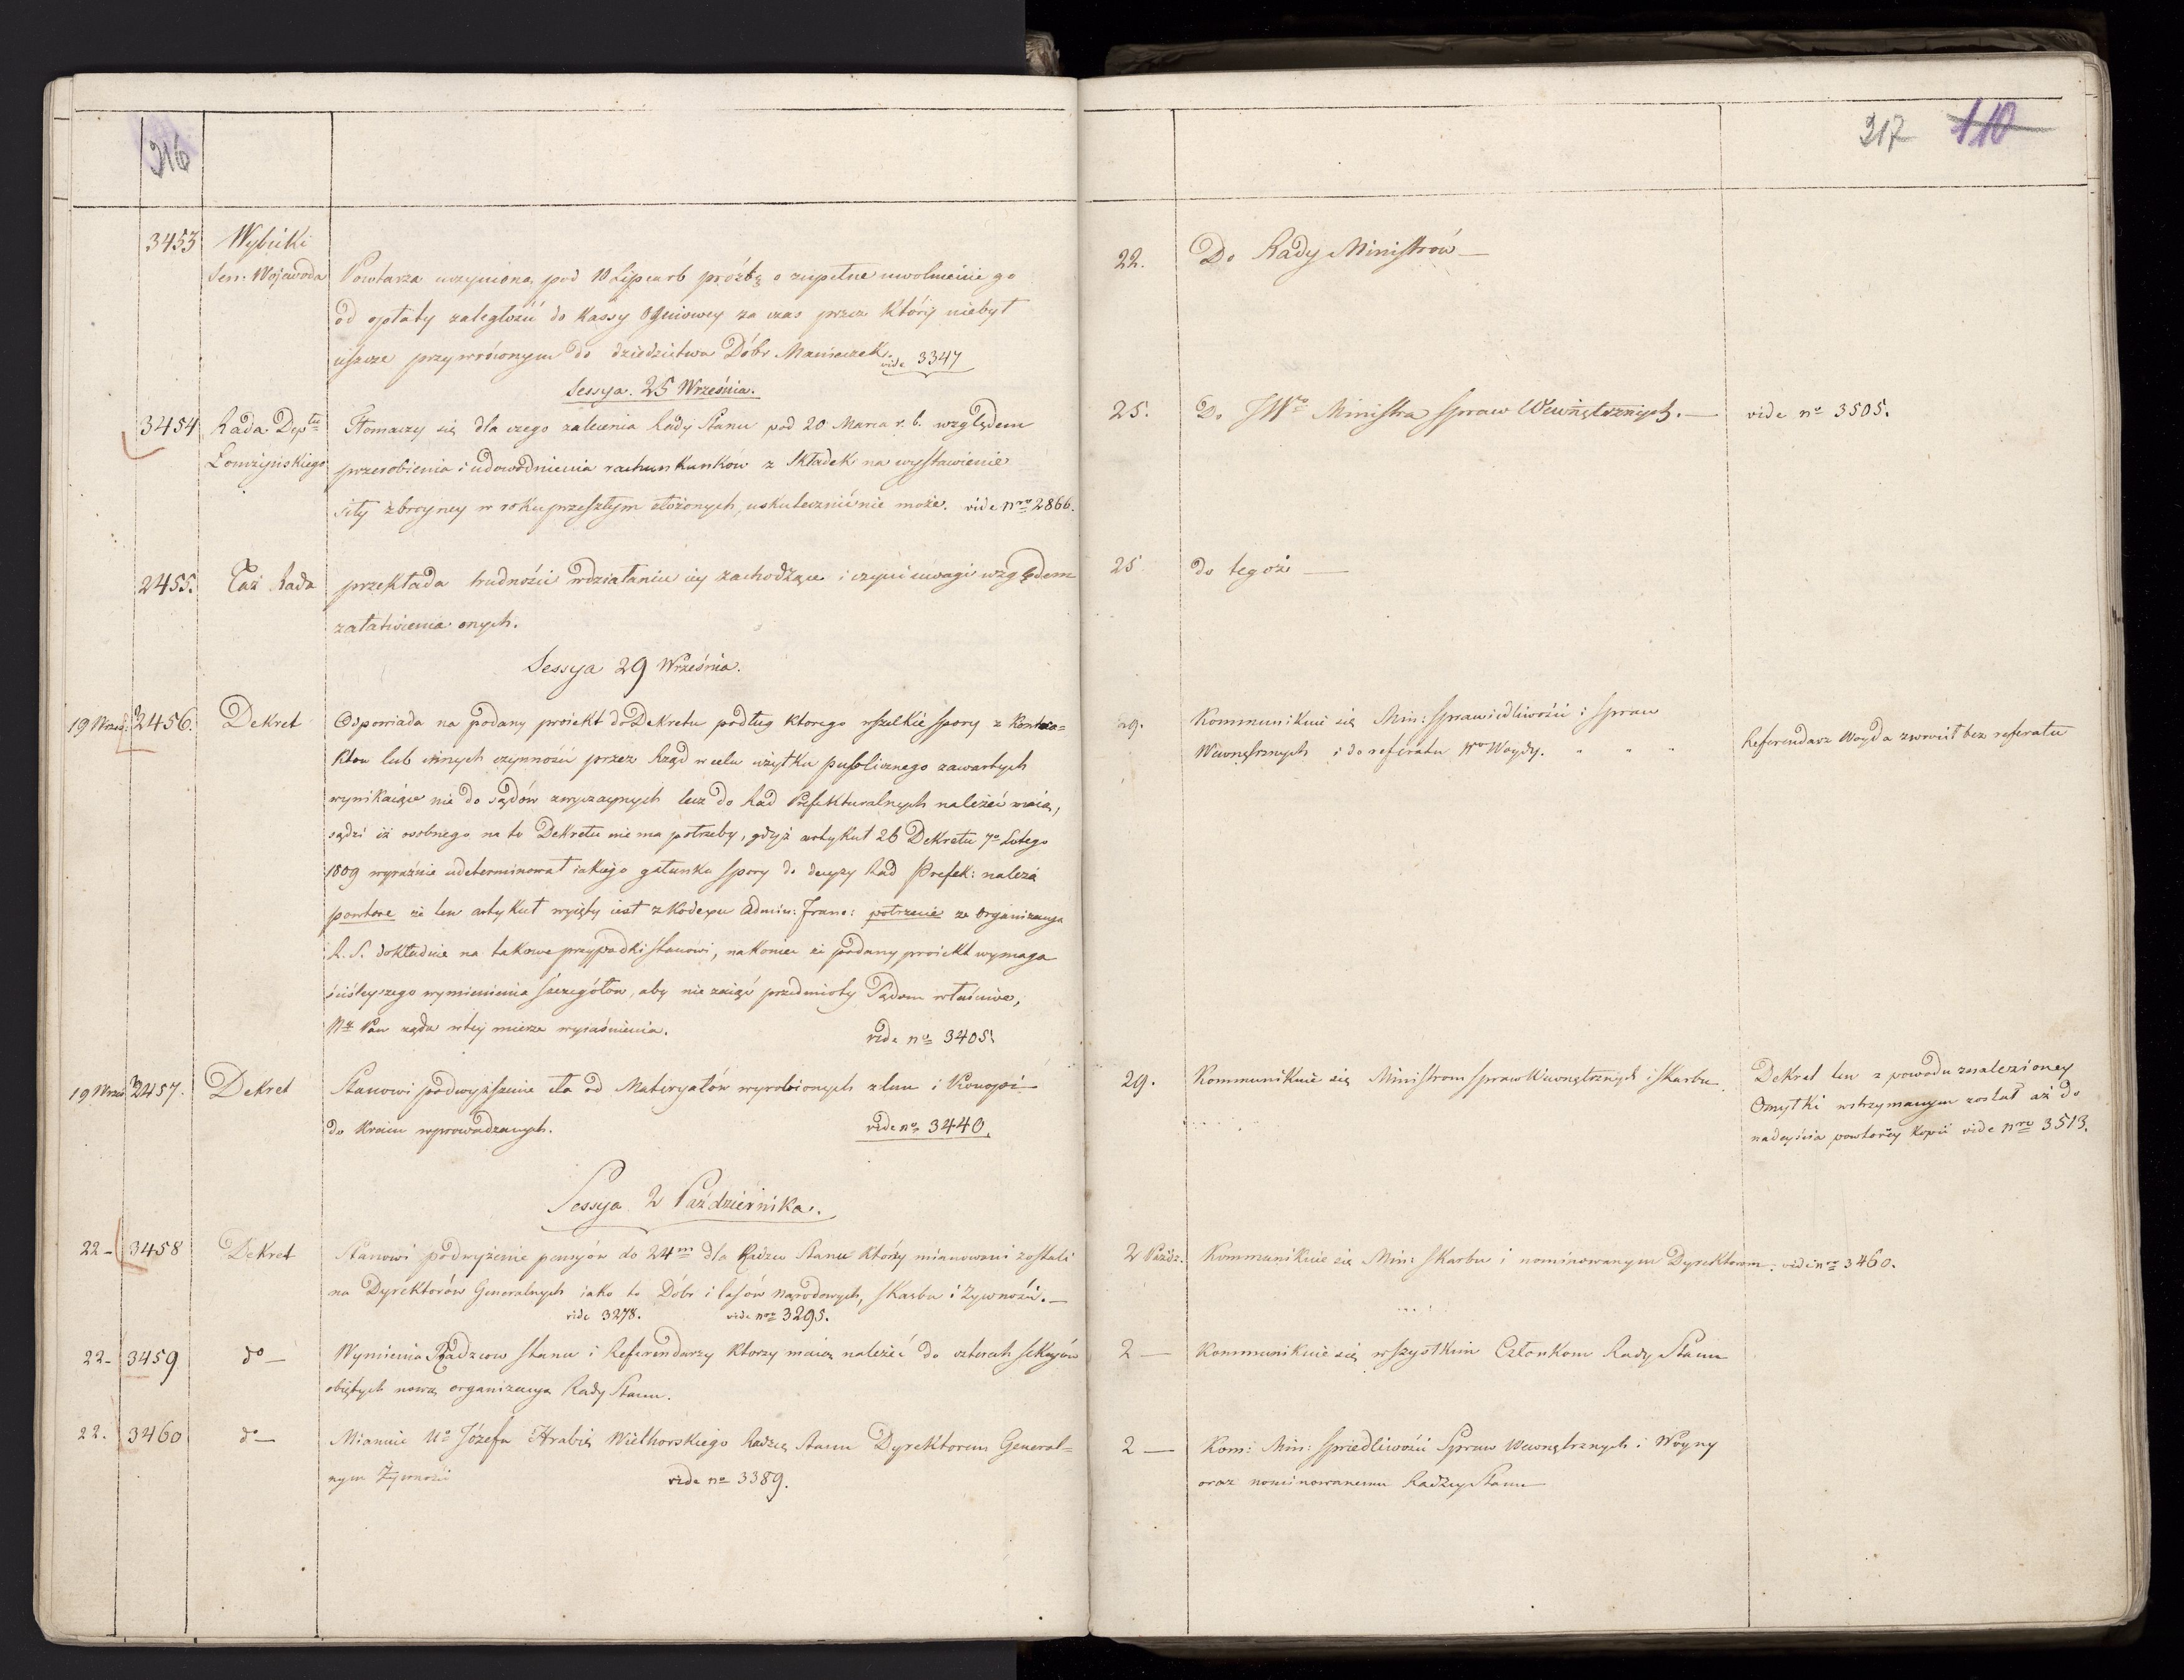 216
3453 Wybicki
Sen. Wojewoda Powtarza uczynioną pod 10 Lipca rb prozbę o zupełne uwolnienie go
od opłaty zaległości do Kassy Ogniowey za czas przez który niebył
ieszcze przywróconym do dziedzictwa Dóbr Manieczek.
vide 3347
Sessya 25 Września.
3454 Rada Dep​tu Tłomaczy się dla czego zalecenia Rady Stanu pod 20 Marca r. b. względem
Łomżyńskiego przerobienia i udowodnienia rachunkunków z Składek na wystawienie
siły zbroyney w roku przeszłym złożonych, uskutecznić nie może. vide nro 2866.
2455. Taż Rada przekłada trudności w działaniu iey zachodzące i czyni uwagi względem
załatwienia onych.
Sessya 29 Września.
19 Wrześ: 32456. Dekret Odpowiada na podany proiekt do Dekretu podług ktorego wszelkie spory z Kontra=
ktow lub innych czynności przez Rząd w celu użytku publicznego zawartych
wynikaiące nie do sądów zwyczaynych lecz do Rad Prefekturalnych należeć maią,
sądzi iż osobnego na to Dekretu nie ma potrzeby, gdyż artykuł 26 Dekretu 7o Lutego
1809 wyraźnie udeterminował iakiego gatunku spory do decyzy Rad Prefek: należą
powtore że ten artykuł wzięty iest z Kodexu Admin: Franc: potrzecie ze Organizacya
R. S. dokładnie na takowe przypadki stanowi, nakoniec że podany proiekt wymaga
ściśleyszego wymienienia szczegółów, aby nie zaiąć przedmioty Sądom właściwe,
Nr Pan żąda w tey mierze wyiaśnienia. vide no 3405.
19 Wrześ 32457. Dekret Stanowi podwyższenie cła od Materyałów wyrobionych z lnu i Konopi
do Kraiu wprowadzanych. vide no 3440.
Sessya 2 Października.
22- 3458 Dekret Stanowi podwyżenie pensyów do 24m dla Radzcu Stanu którzy mianowani zostali
na Dyrektorów Generalnych iako to Dóbr i lasów Narodowych, skarbu i żywności.—
vide 3278. vide nro 3295.
22- 3459 do — Wymienia Radzcow Stanu i Referendarzy ktorzy maią należeć do czterech sekcyów
obiętych nową organizacya Rady Stanu.
22. 3460 do — Mianuie Ur Józefa Hrabię Wielhorskiego Radzcę Stanu Dyrektorem General=
nym Żywności vide no 3389.
217 110
22. Do Rady Ministrów —
25. Do JWo Ministra Spraw Wewnętrznych. — vide no 3505.
25 do tegoż —
29. Kommunikuie się Min: Sprawiedliwości i Spraw
Wewnętrznych i do referatu Wo Woydy. Referendarz Woyda zwrócił bez referatu
29. Kommunikuie się Ministrom Spraw Wewnętrznych i Skarbu. Dekret ten z powodu znalezioney
Omyłki wstrzymanym został aż do
nadeyścia powtorzey Kopii vide nro 3513.
2 Paźdz. Kommunikuie się Min: Skarbu i nominowanym Dyrektorom. vide nro 3460.
2 — Kommunikuie się wszystkim Członkom Rady Stanu
2 — Kom: Min: Spriedliwości Spraw Wewnętrznych i Woyny
oraz nominowanemu Radzcy Stanu